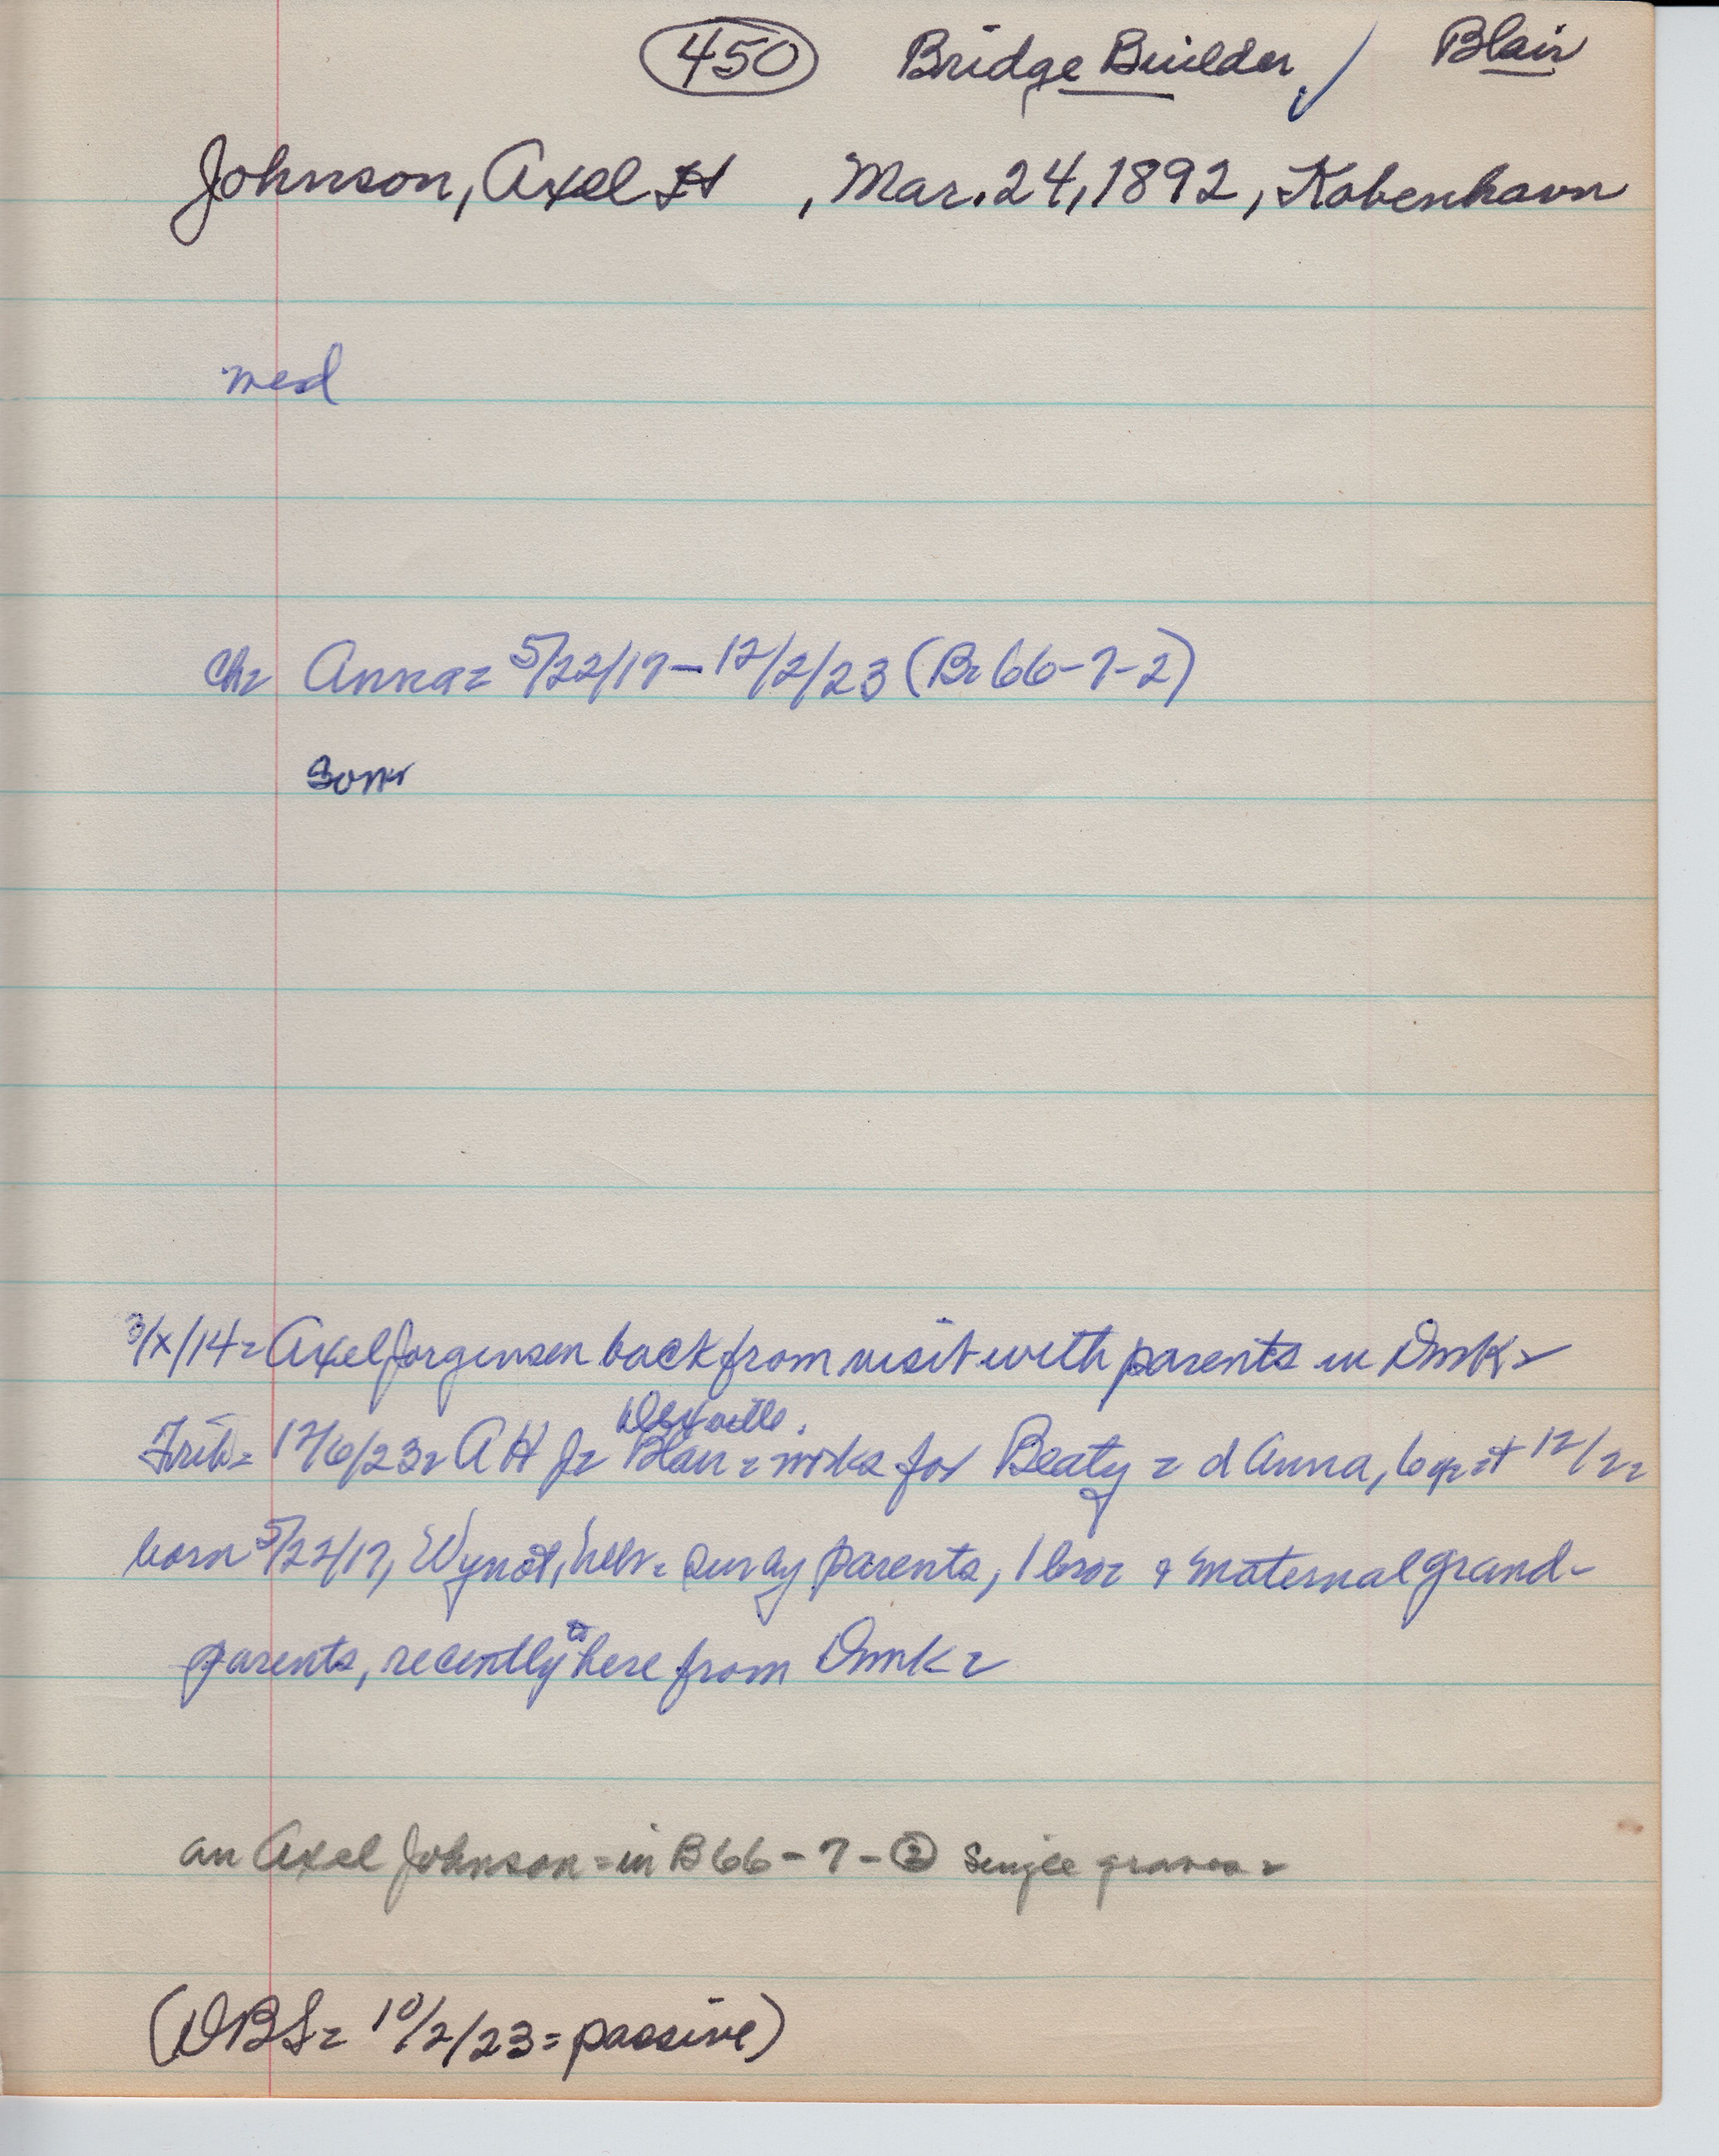 450 Bridge Builder ✓ Blair
Johnson, Axel H , Mar. 24, 1892, Kobenhavn
med
ch= Anna= 5/22/17 – 12/2/23 (B= 66-7-2)
Son=
3/x/14= Axel Jorgensen back from visit with parents in Dmk=
12/6/23= A H J= Blair = works for Beaty = d Anna, 6 yr= + 12/2=
born 5/22/17, Wynot, Neb= surv by parents, 1 bro= & maternal grand-
parents, recently here from Dmk=
an Axel Johnson = in B66-7-② Single graves=
(DBS= 10/2/23= passive)